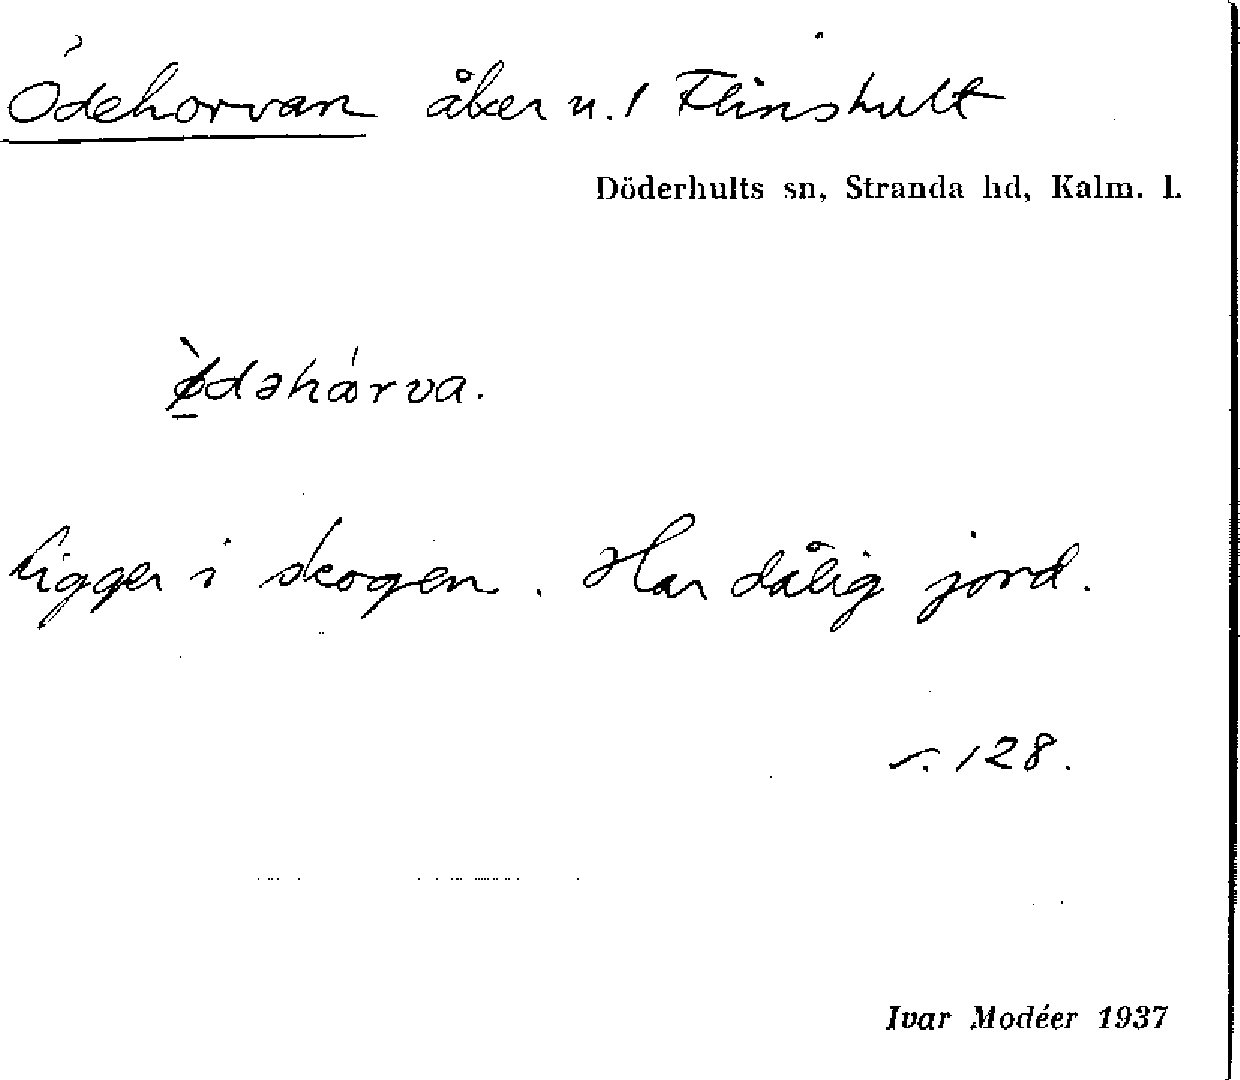 Ödehorvan åker n. 1 Flinshult
Döderhults sn, Stranda hd, Kalm. l.
ø̀dəhárva.
Ligger i skogen. Har dålig jord.
s. 128.
Ivar Modéer 1937